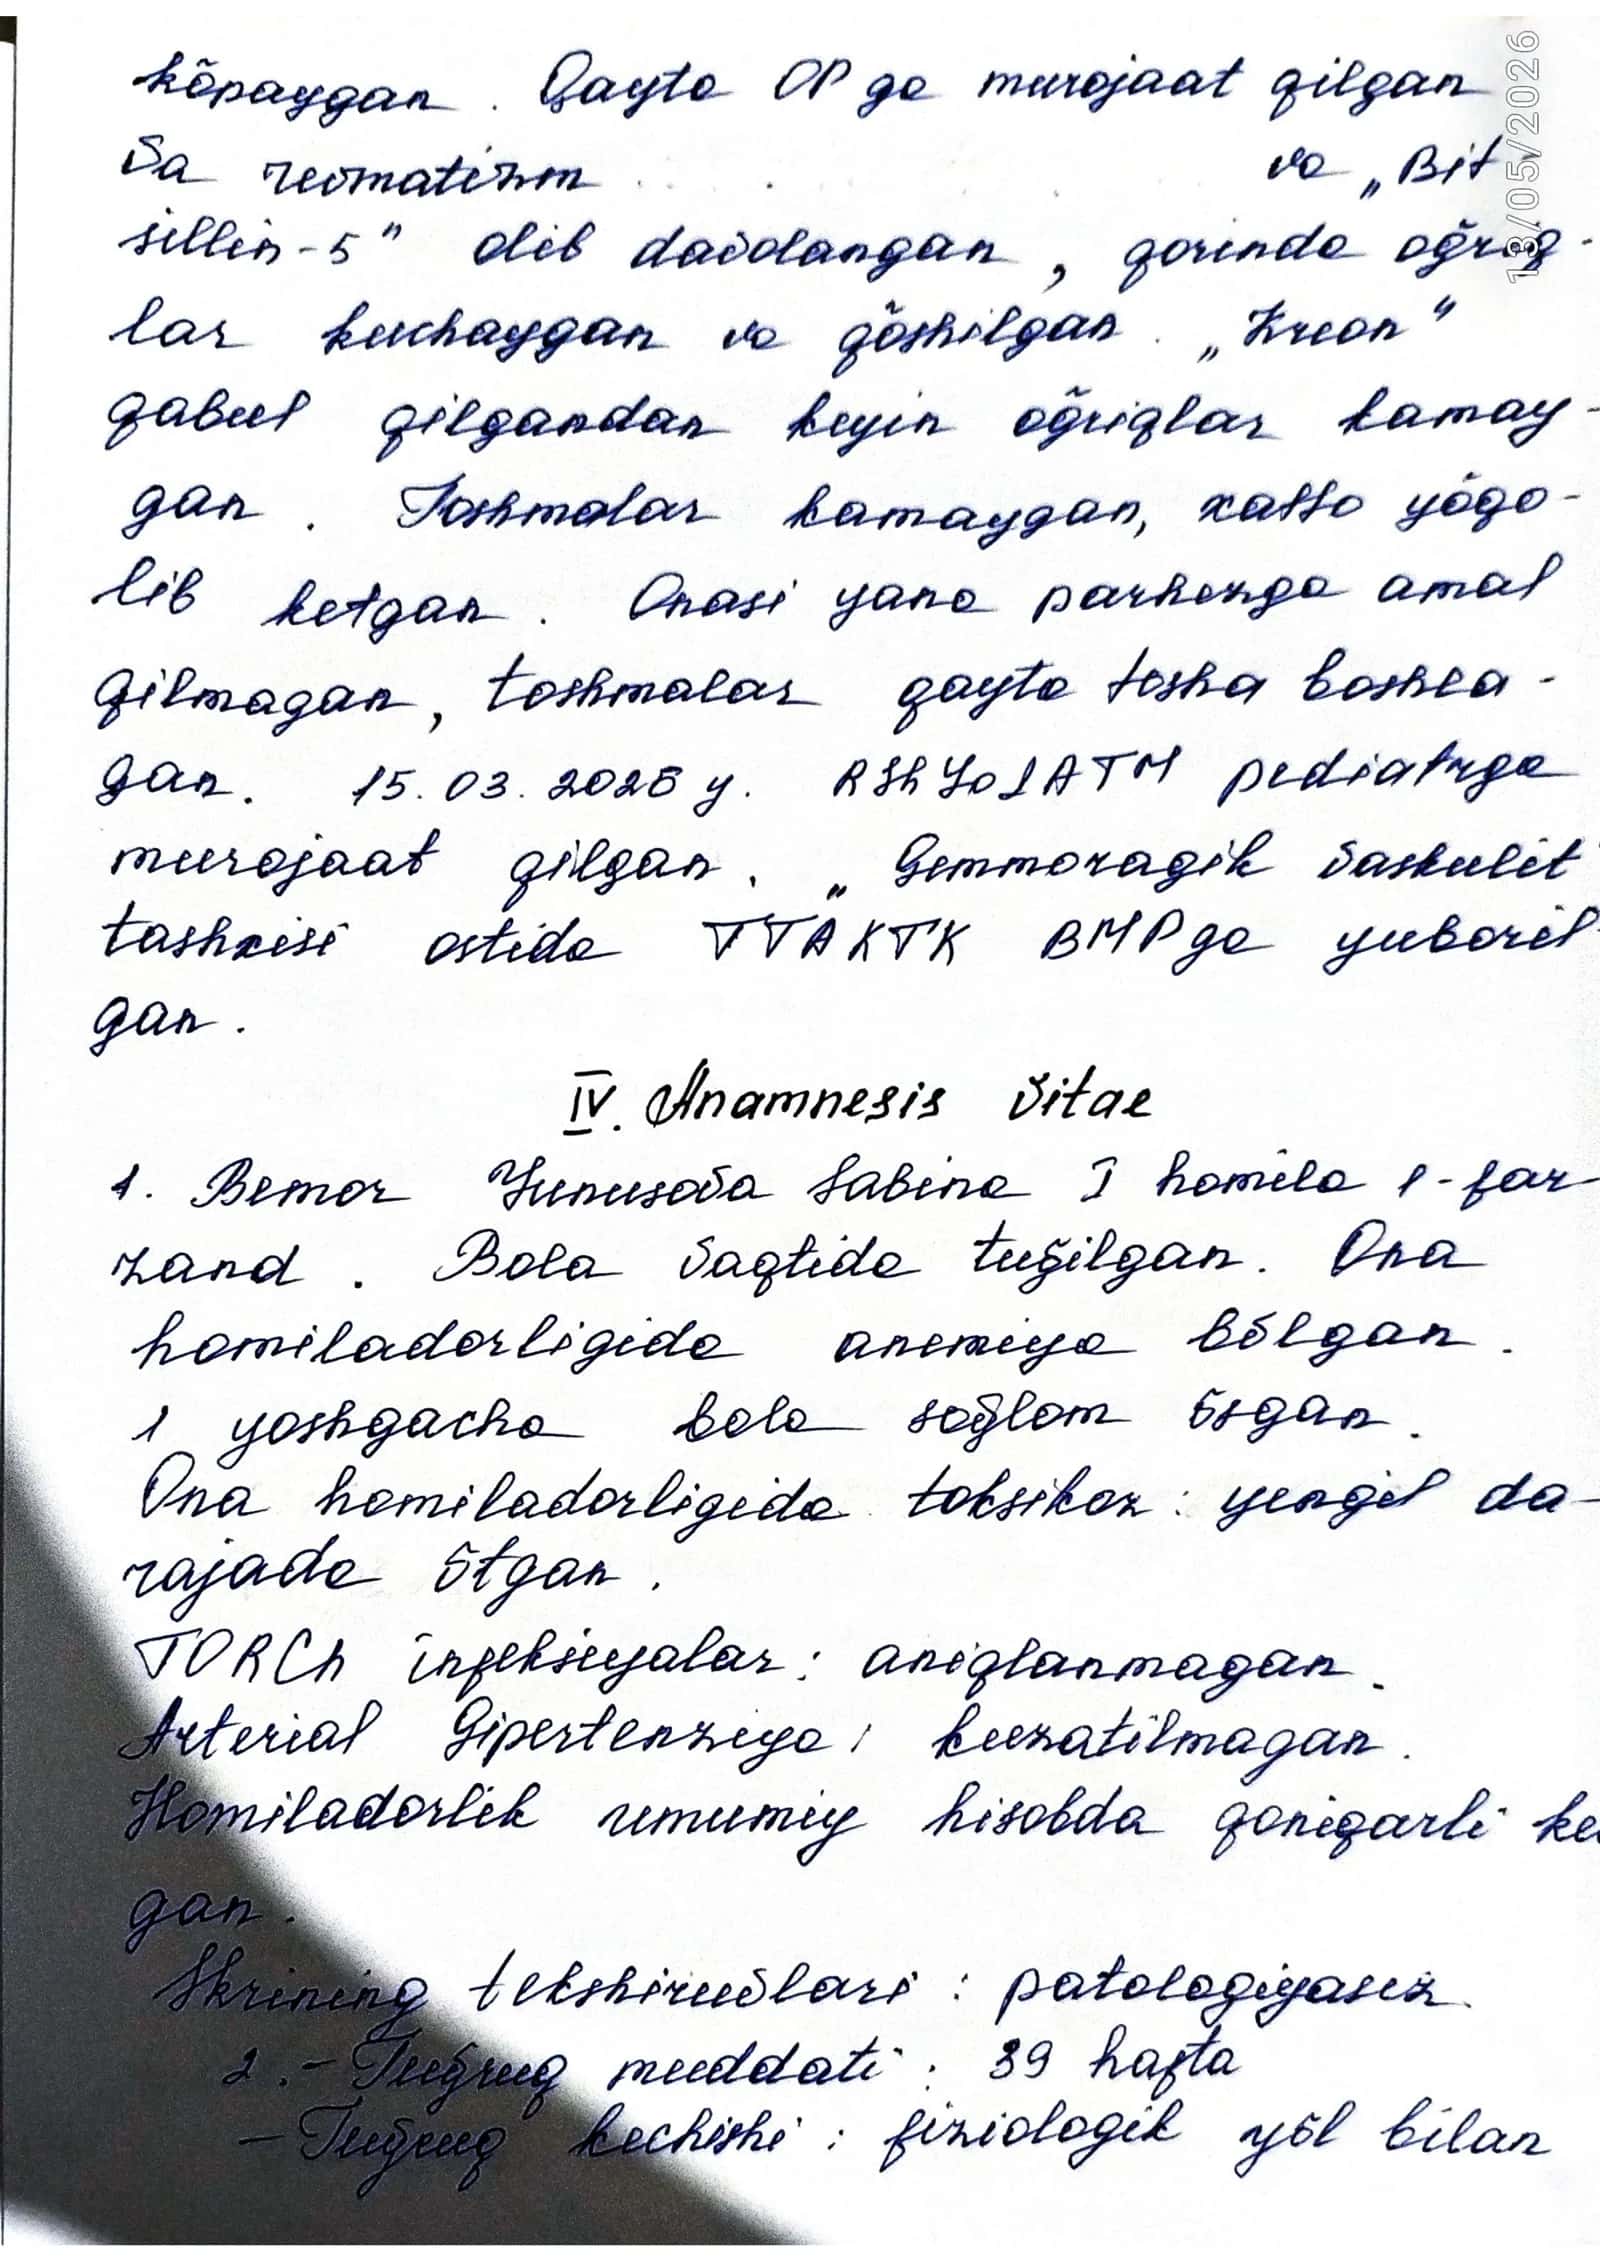 kõpaygan. Qayta OP ga murojaat qilgan
va revmatizm va „Bit
sillin-5" dib davolangan, qorinda oğriq-
lar kuchaygan va qõshilgan. „Kreon"
qabul qilgandan keyin oğriqlar kamay-
gan. Toshmalar kamaygan, xatto yõqo-
lib ketgan. Onasi yana parhezga amal
qilmagan, toshmalar qayta tosha boshla-
gan. 15.03.2026 y. pediatrga
murojaat qilgan. „Gemmoragik vaskulit
tashxisi ostida TTAKTK BMP ga yuboril
gan.
IV. Anamnesis vitae
1. Bemor Yunusova Sabina I homila 1-far
zand. Bola vaqtida tuğilgan. Ona
homiladorligida anemiya bõlgan.
1 yoshgacha bola soğlom õsgan.
Ona homiladorligida toksikoz: yengil da-
rajada õtgan.
TORCh infeksiyalar: aniqlanmagan.
Arterial Gipertenziya: kuzatilmagan.
Homiladorlik umumiy hisobda qoniqarli ke
gan.
Skrining tekshiruvlari: patologiyasiz.
2. - Tuğruq muddati: 39 hafta
- Tuğruq kechishi: fiziologik yõl bilan
13/05/2026